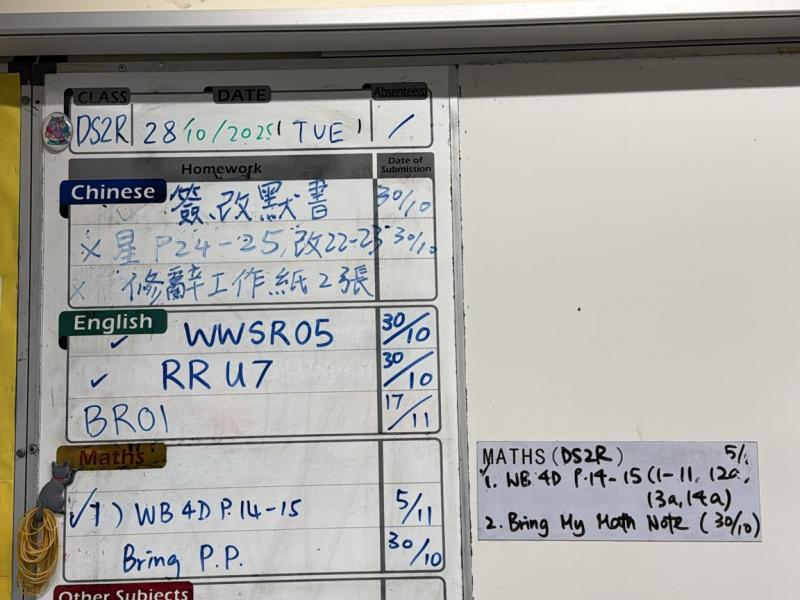 CLASS DATE Absentee(s)
DS2R 28/10/2025 (TUE) /
Homework Date of Submission
Chinese
簽改默書 30/10
× 星 P24-25, 改22-23 30/10
× 修辭工作紙2張
English
✓ WWSR05 30/10
✓ RR U7 30/10
BR01 17/11
Maths
✓1) WB 4D P.14-15 5/11
Bring P.P. 30/10
Other Subjects
MATHS (DS2R) 5/
1. WB 4D P.14-15 (1-11, 12a,
13a, 14a)
2. Bring My Math Note (30/10)